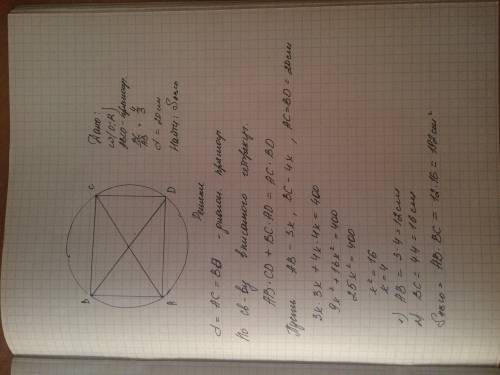 Дано:
ω(O;R)
ABCD - прямоуг.
d = 20 см
Найти: Sпрмг
B
C
A
D
Решение
d = AC = BD - диагон. прямоуг.
По св-ву вписанного четырехуг.
AB·CD + BC·AD = AC·BD
Пусть AB = 3x, BC = 4x, AC=BD = 20см
3x·3x + 4x·4x = 400
9x² + 16x² = 400
25x² = 400
x² = 16
x = 4
1) AB = 3·4 = 12 см
2) BC = 4·4 = 16 см
AB·BC = 12·16 = 192 см²